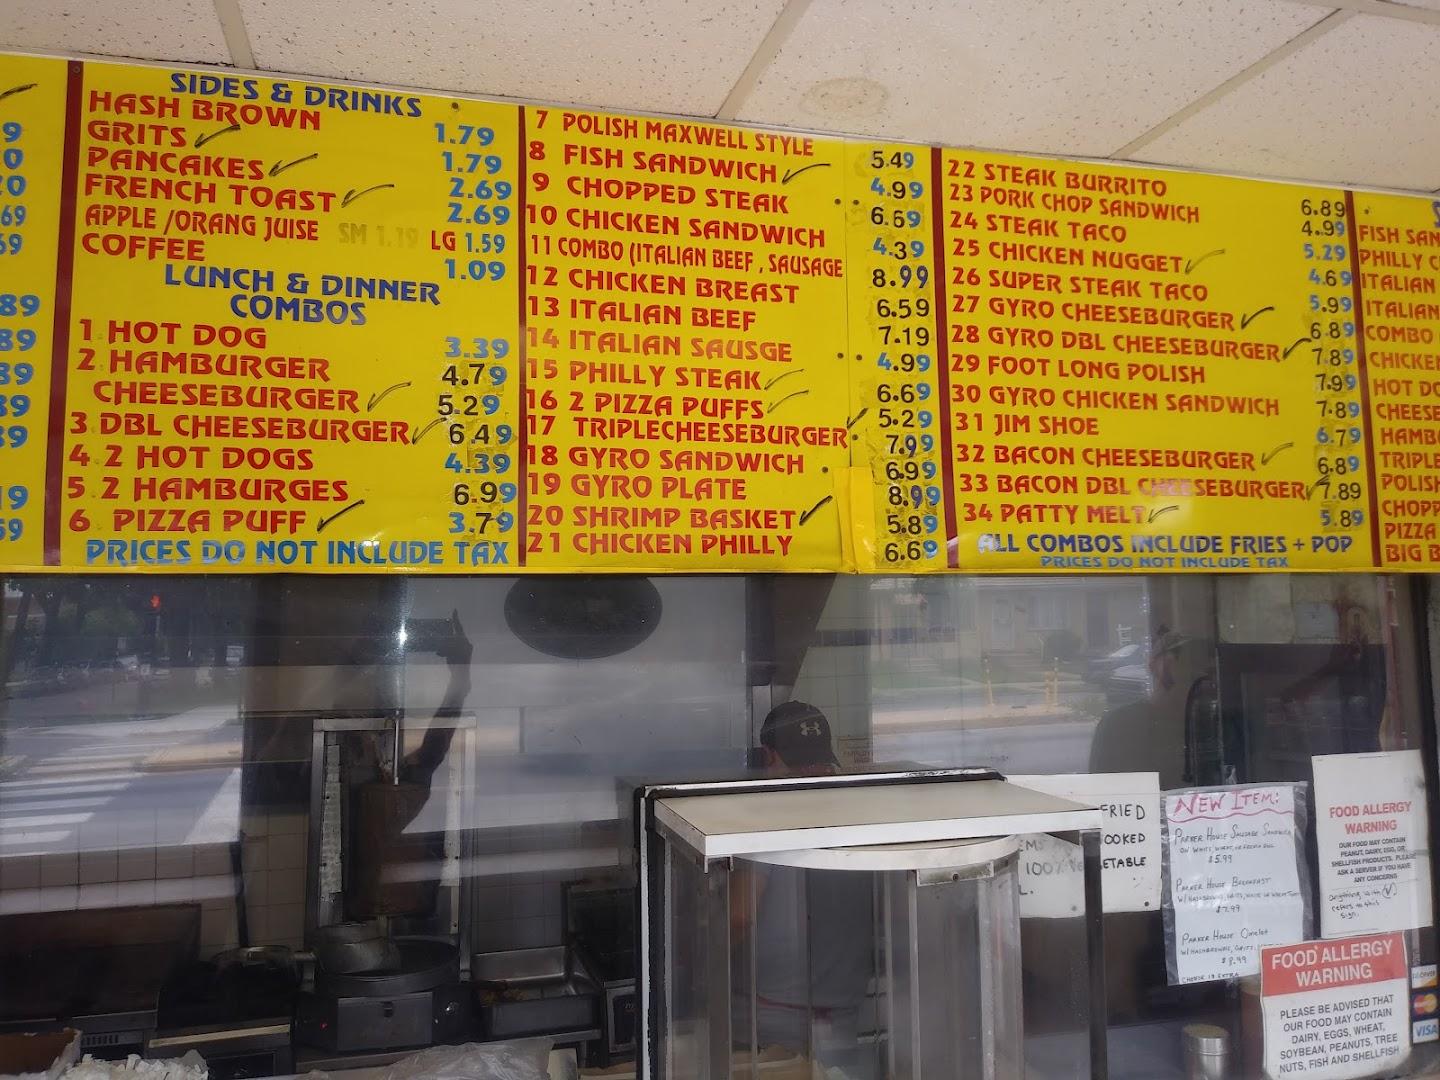 SIDES & DRINKS
HASH BROWN 1.79
GRITS 1.79
PANCAKES 2.69
FRENCH TOAST 2.69
APPLE /ORANG JUISE SM 1.19 LG 1.59
COFFEE 1.09
LUNCH & DINNER
COMBOS
1 HOT DOG 3.39
2 HAMBURGER 4.79
CHEESEBURGER 5.29
3 DBL CHEESEBURGER 6.49
4 2 HOT DOGS 4.39
5 2 HAMBURGES 6.99
6 PIZZA PUFF 3.79
PRICES DO NOT INCLUDE TAX
7 POLISH MAXWELL STYLE 5.49
8 FISH SANDWICH 4.99
9 CHOPPED STEAK 6.69
10 CHICKEN SANDWICH 4.39
11 COMBO (ITALIAN BEEF , SAUSAGE 8.99
12 CHICKEN BREAST 6.59
13 ITALIAN BEEF 7.19
14 ITALIAN SAUSGE 4.99
15 PHILLY STEAK 6.69
16 2 PIZZA PUFFS 5.29
17 TRIPLECHEESEBURGER 7.99
18 GYRO SANDWICH 6.99
19 GYRO PLATE 8.99
20 SHRIMP BASKET 5.89
21 CHICKEN PHILLY 6.69
22 STEAK BURRITO 6.89
23 PORK CHOP SANDWICH 4.99
24 STEAK TACO 5.29
25 CHICKEN NUGGET 4.69
26 SUPER STEAK TACO 5.99
27 GYRO CHEESEBURGER 6.89
28 GYRO DBL CHEESEBURGER 7.89
29 FOOT LONG POLISH 7.99
30 GYRO CHICKEN SANDWICH 7.89
31 JIM SHOE 6.79
32 BACON CHEESEBURGER 6.89
33 BACON DBL CHEESEBURGER 7.89
34 PATTY MELT 5.89
ALL COMBOS INCLUDE FRIES + POP
PRICES DO NOT INCLUDE TAX
FISH SAN
PHILLY C
ITALIAN
ITALIAN
COMBO
CHICKEN
HOT DO
CHEESE
HAMBU
TRIPLE
POLISH
CHOPP
PIZZA
BIG B
FRIED
COOKED
100% VEGETABLE
NEW ITEM:
PARKER HOUSE SAUSAGE SANDWICH
ON WHITE, WHEAT, OR FRENCH ROLL
$5.99
PARKER HOUSE BREAKFAST
$7.99
PARKER HOUSE OMELET
W/ HASHBROWNS, GRITS,
$8.99
CHEESE IS EXTRA
FOOD ALLERGY
WARNING
OUR FOOD MAY CONTAIN
PEANUT, DAIRY, EGG, OR
SHELLFISH PRODUCTS. PLEASE
ASK A SERVER IF YOU HAVE
ANY CONCERNS
Anything with (✓)
refers to this
sign.
FOOD ALLERGY
WARNING
PLEASE BE ADVISED THAT
OUR FOOD MAY CONTAIN
DAIRY, EGGS, WHEAT,
SOYBEAN, PEANUTS, TREE
NUTS, FISH AND SHELLFISH
VISA